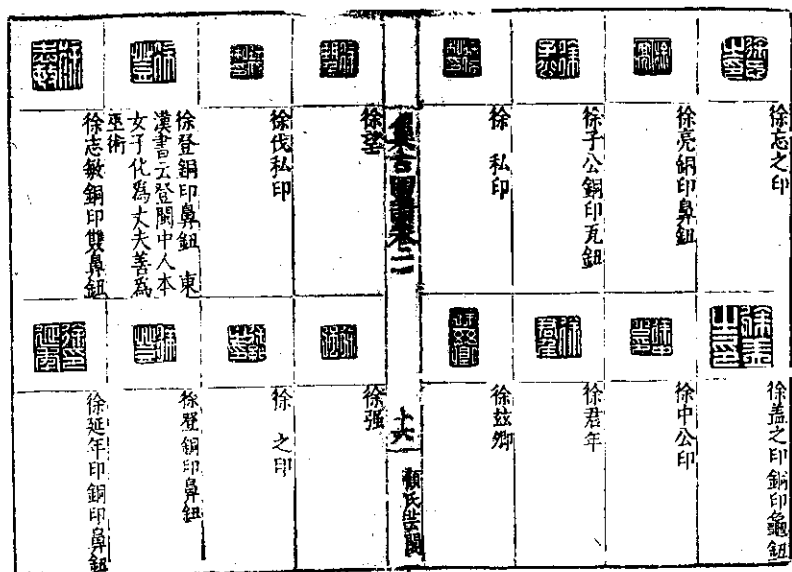 徐忘之印
徐亮銅印鼻鈕
徐子公銅印瓦鈕
徐 私印
徐盖之印銅印龜鈕
徐中公印
徐君年
徐玆卿
集古印譜卷二
十六
顧氏芸閣
徐望
徐伐私印
徐登銅印鼻鈕 東
漢書云登閩中人本
女子化爲丈夫善爲
巫術
徐志敏銅印雙鼻鈕
徐强
徐 之印
徐登銅印鼻鈕
徐延年印銅印鼻鈕